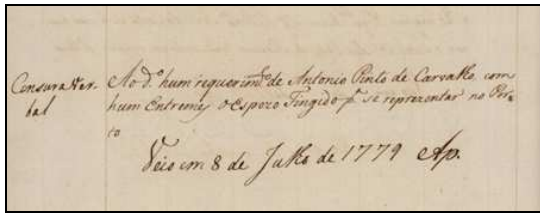 Censura Ver-
bal
Ao d.º hum requerim.to de Antonio Pinto de Carvalho, com
hum Entremes o Espozo Fingido p.ª se reprezentar no Por-
to
Veio em 8 de Julho de 1779 Ap.